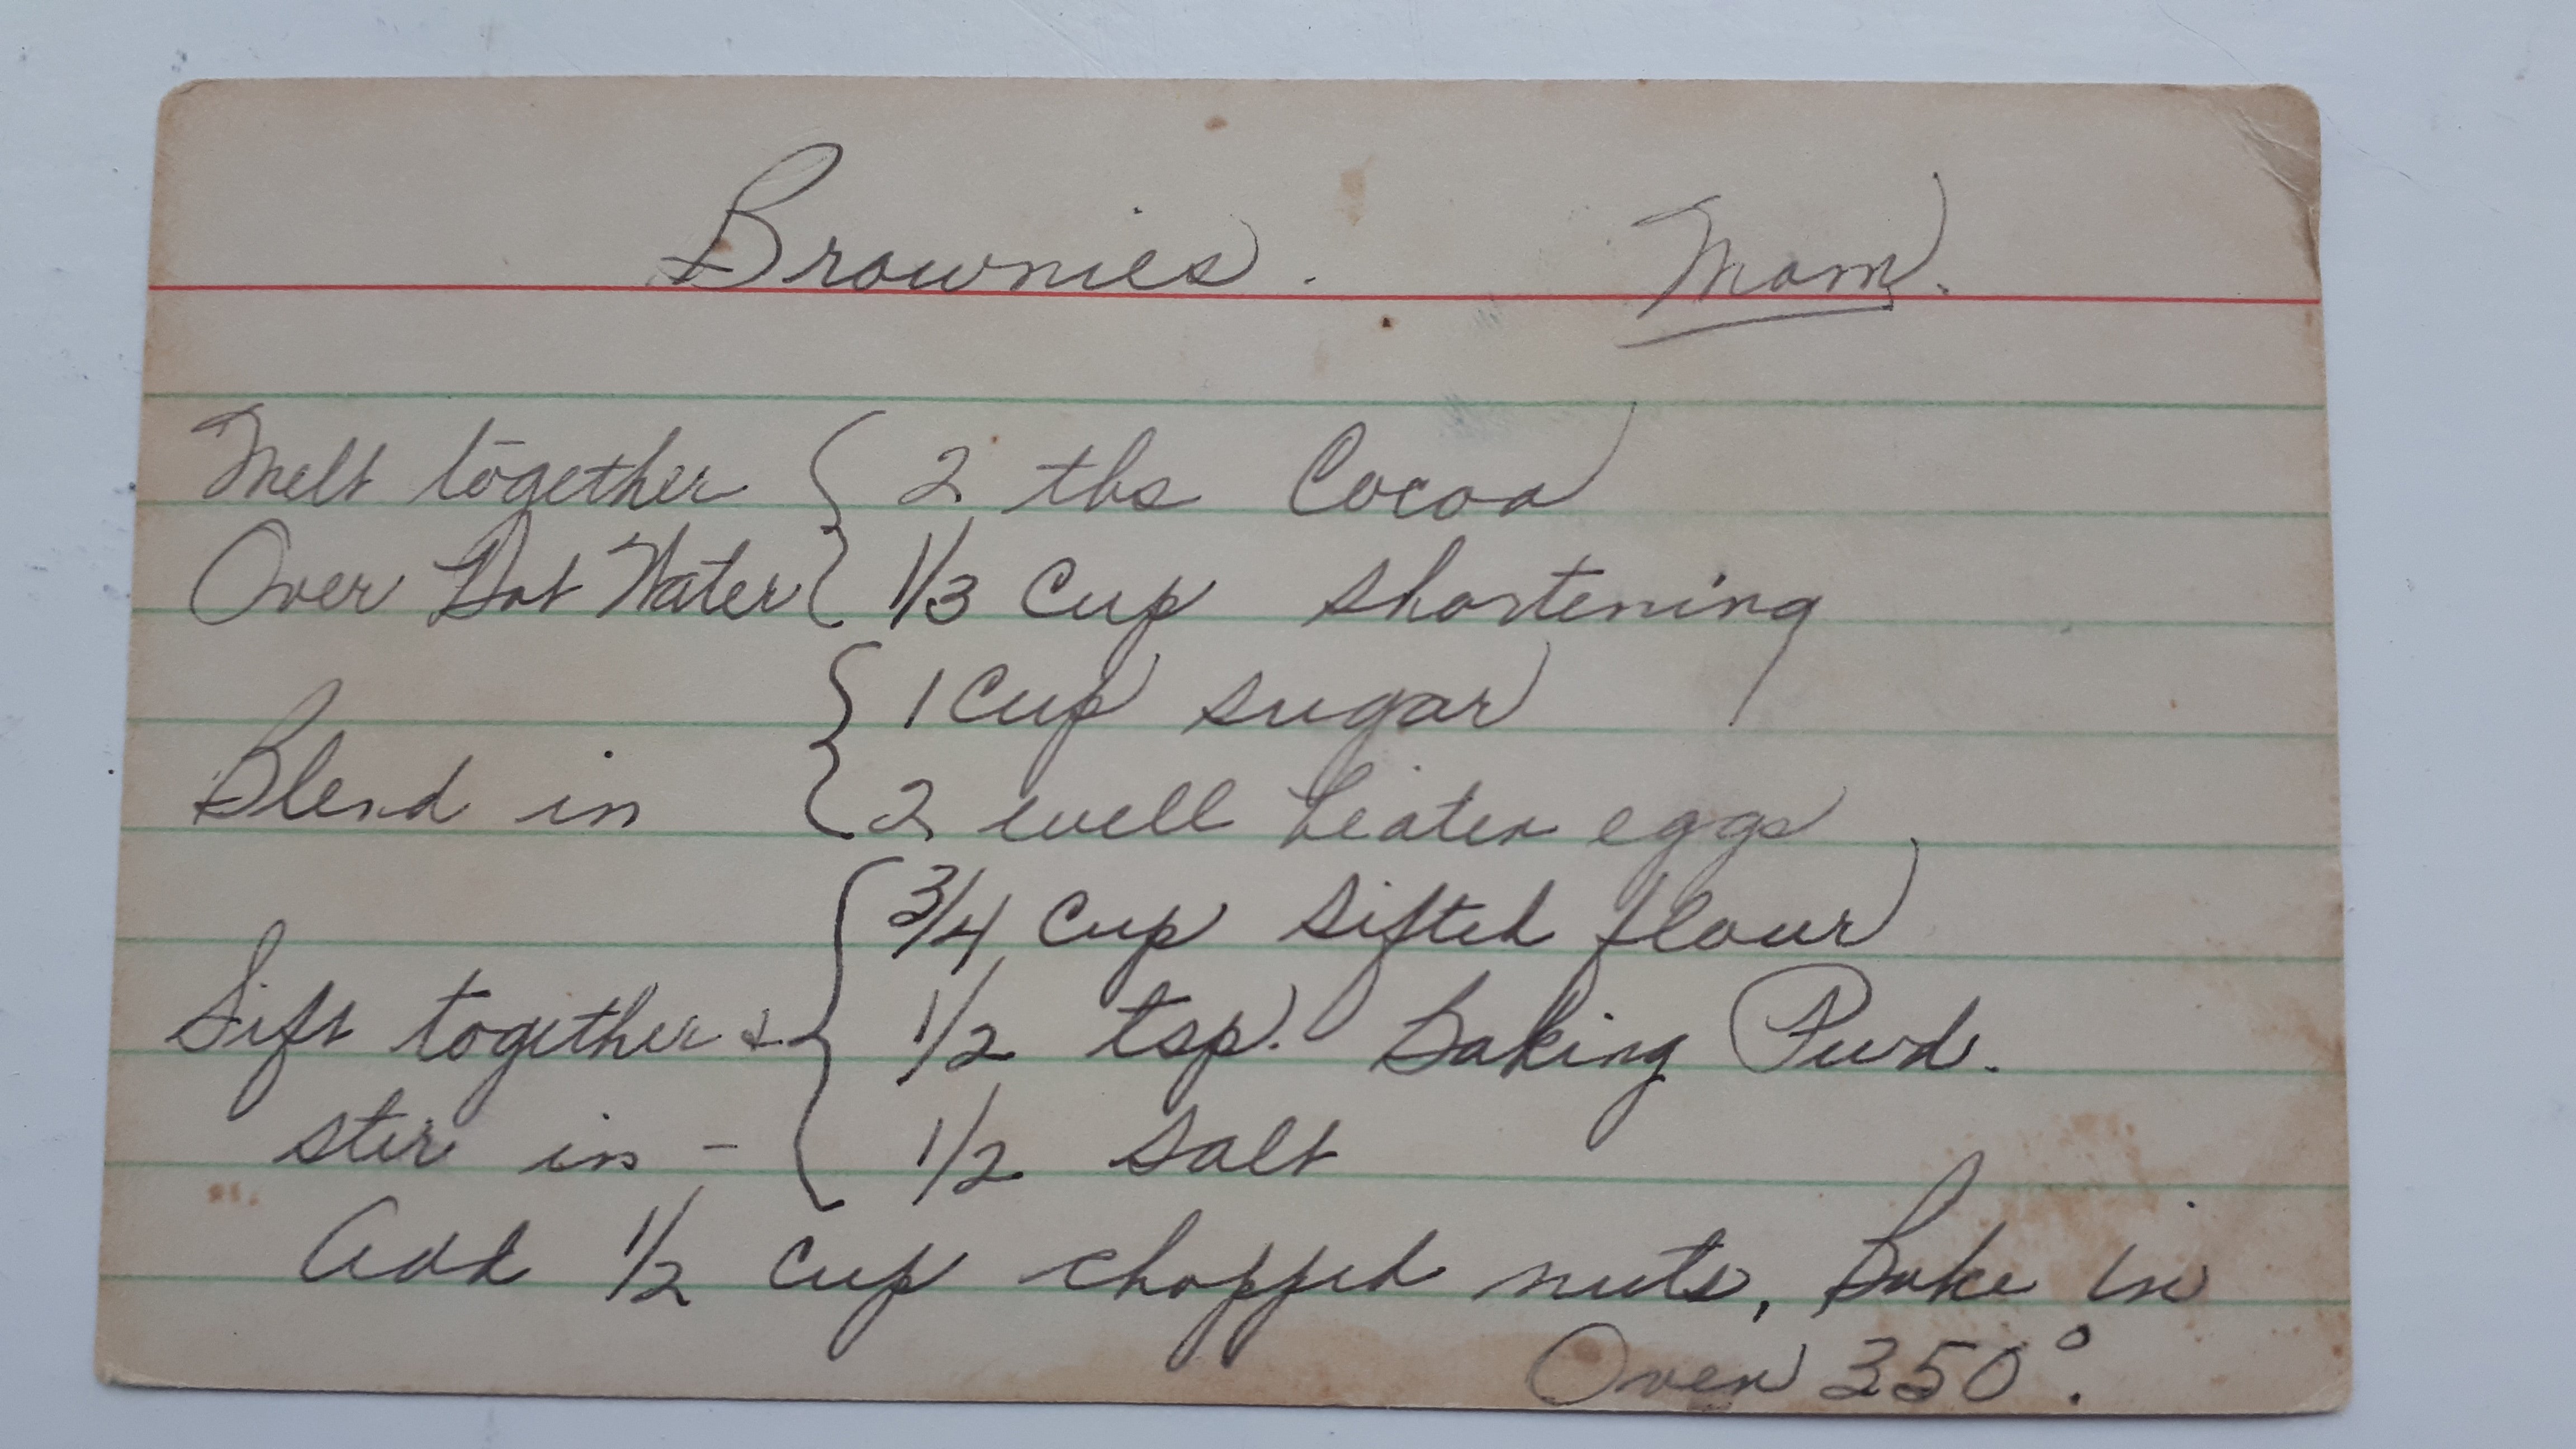 Brownies. Mom.
Melt together { 2 tbs Cocoa
Over Hot Water { 1/3 Cup shortening
{ 1 Cup sugar
Blend in { 2 well beaten eggs
{ 3/4 Cup sifted flour
Sift together & { 1/2 tsp. Baking Pwd.
stir in - { 1/2 salt
Add 1/2 cup chopped nuts, Bake in
Oven 350°.